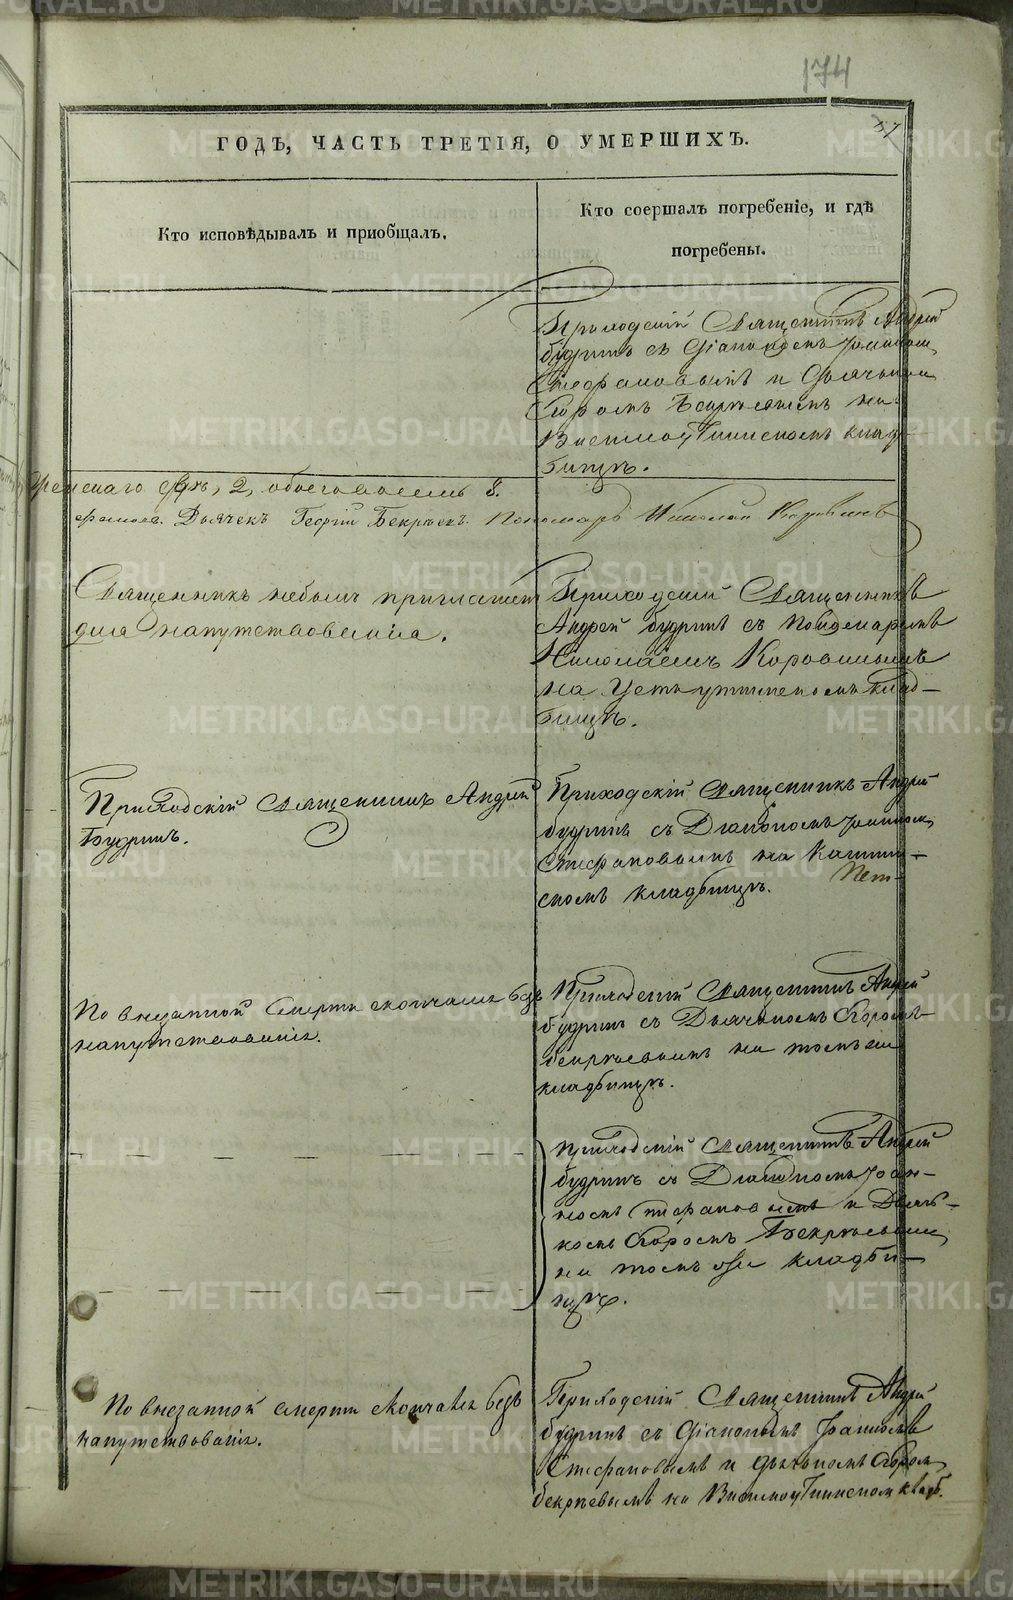 174
37
ГОДЪ, ЧАСТЬ ТРЕТІЯ, О УМЕРШИХЪ.
Кто исповѣдывалъ и приобщалъ.
Кто соершалъ погребеніе, и гдѣ
погребены.
Приходскій Священникъ Андрей
Будринъ съ Діакономъ Іоанномъ
Стефановымъ и Дьячкомъ
Егоромъ Бекрѣевымъ на
Висимоуткинскомъ клад-
бищѣ.
2, обоего 8.
Дьячекъ Георгій Бекрѣевъ. Пономарь Николай Коровинъ
Священникъ небылъ приглашенъ
для напутствованія.
Приходскій Священникъ
Андрей Будринъ съ Пономаремъ
Николаемъ Коровинымъ
на Усть-уткинскомъ клад-
бищѣ.
Приходскій Священникъ Андрей
Будринъ.
Приходскій Священникъ Андрей
Будринъ съ Діакономъ Іоанномъ
Стефановымъ на
скомъ кладбищѣ.
По внезапной смерти скончался безъ
напутствованія.
Приходскій Священникъ Андрей
Будринъ съ Дьячкомъ Егоромъ
Бекрѣевымъ на томъ же
кладбищѣ.
Приходскій Священникъ Андрей
Будринъ съ Діакономъ Іоан-
номъ Стефановымъ и Дьяч-
комъ Егоромъ Бекрѣевымъ
на томъ же кладби-
щѣ.
По внезапной смерти скончался безъ
напутствованія.
Приходскій Священникъ Андрей
Будринъ съ Діакономъ Іоанномъ
Стефановымъ и Дьячкомъ Егоромъ
Бекрѣевымъ на Висимоуткинскомъ кладб.
METRIKI.GASO-URAL.RU